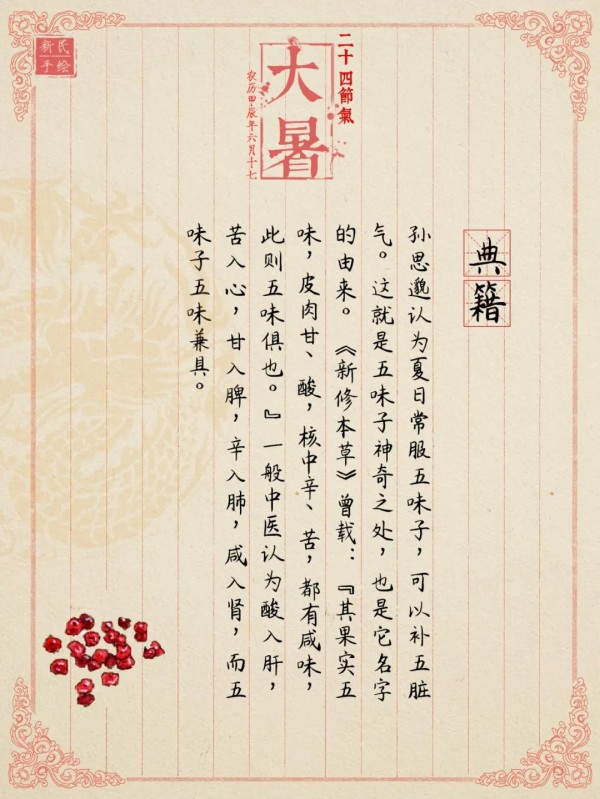 新氏
手绘
二十四節氣
大暑
农历甲辰年六月十七
典籍
孙思邈认为夏日常服五味子，可以补五脏
气。这就是五味子神奇之处，也是它名字
的由来。《新修本草》曾载：『其果实五
味，皮肉甘、酸，核中辛、苦，都有咸味，
此则五味俱也。』一般中医认为酸入肝，
苦入心，甘入脾，辛入肺，咸入肾，而五
味子五味兼具。